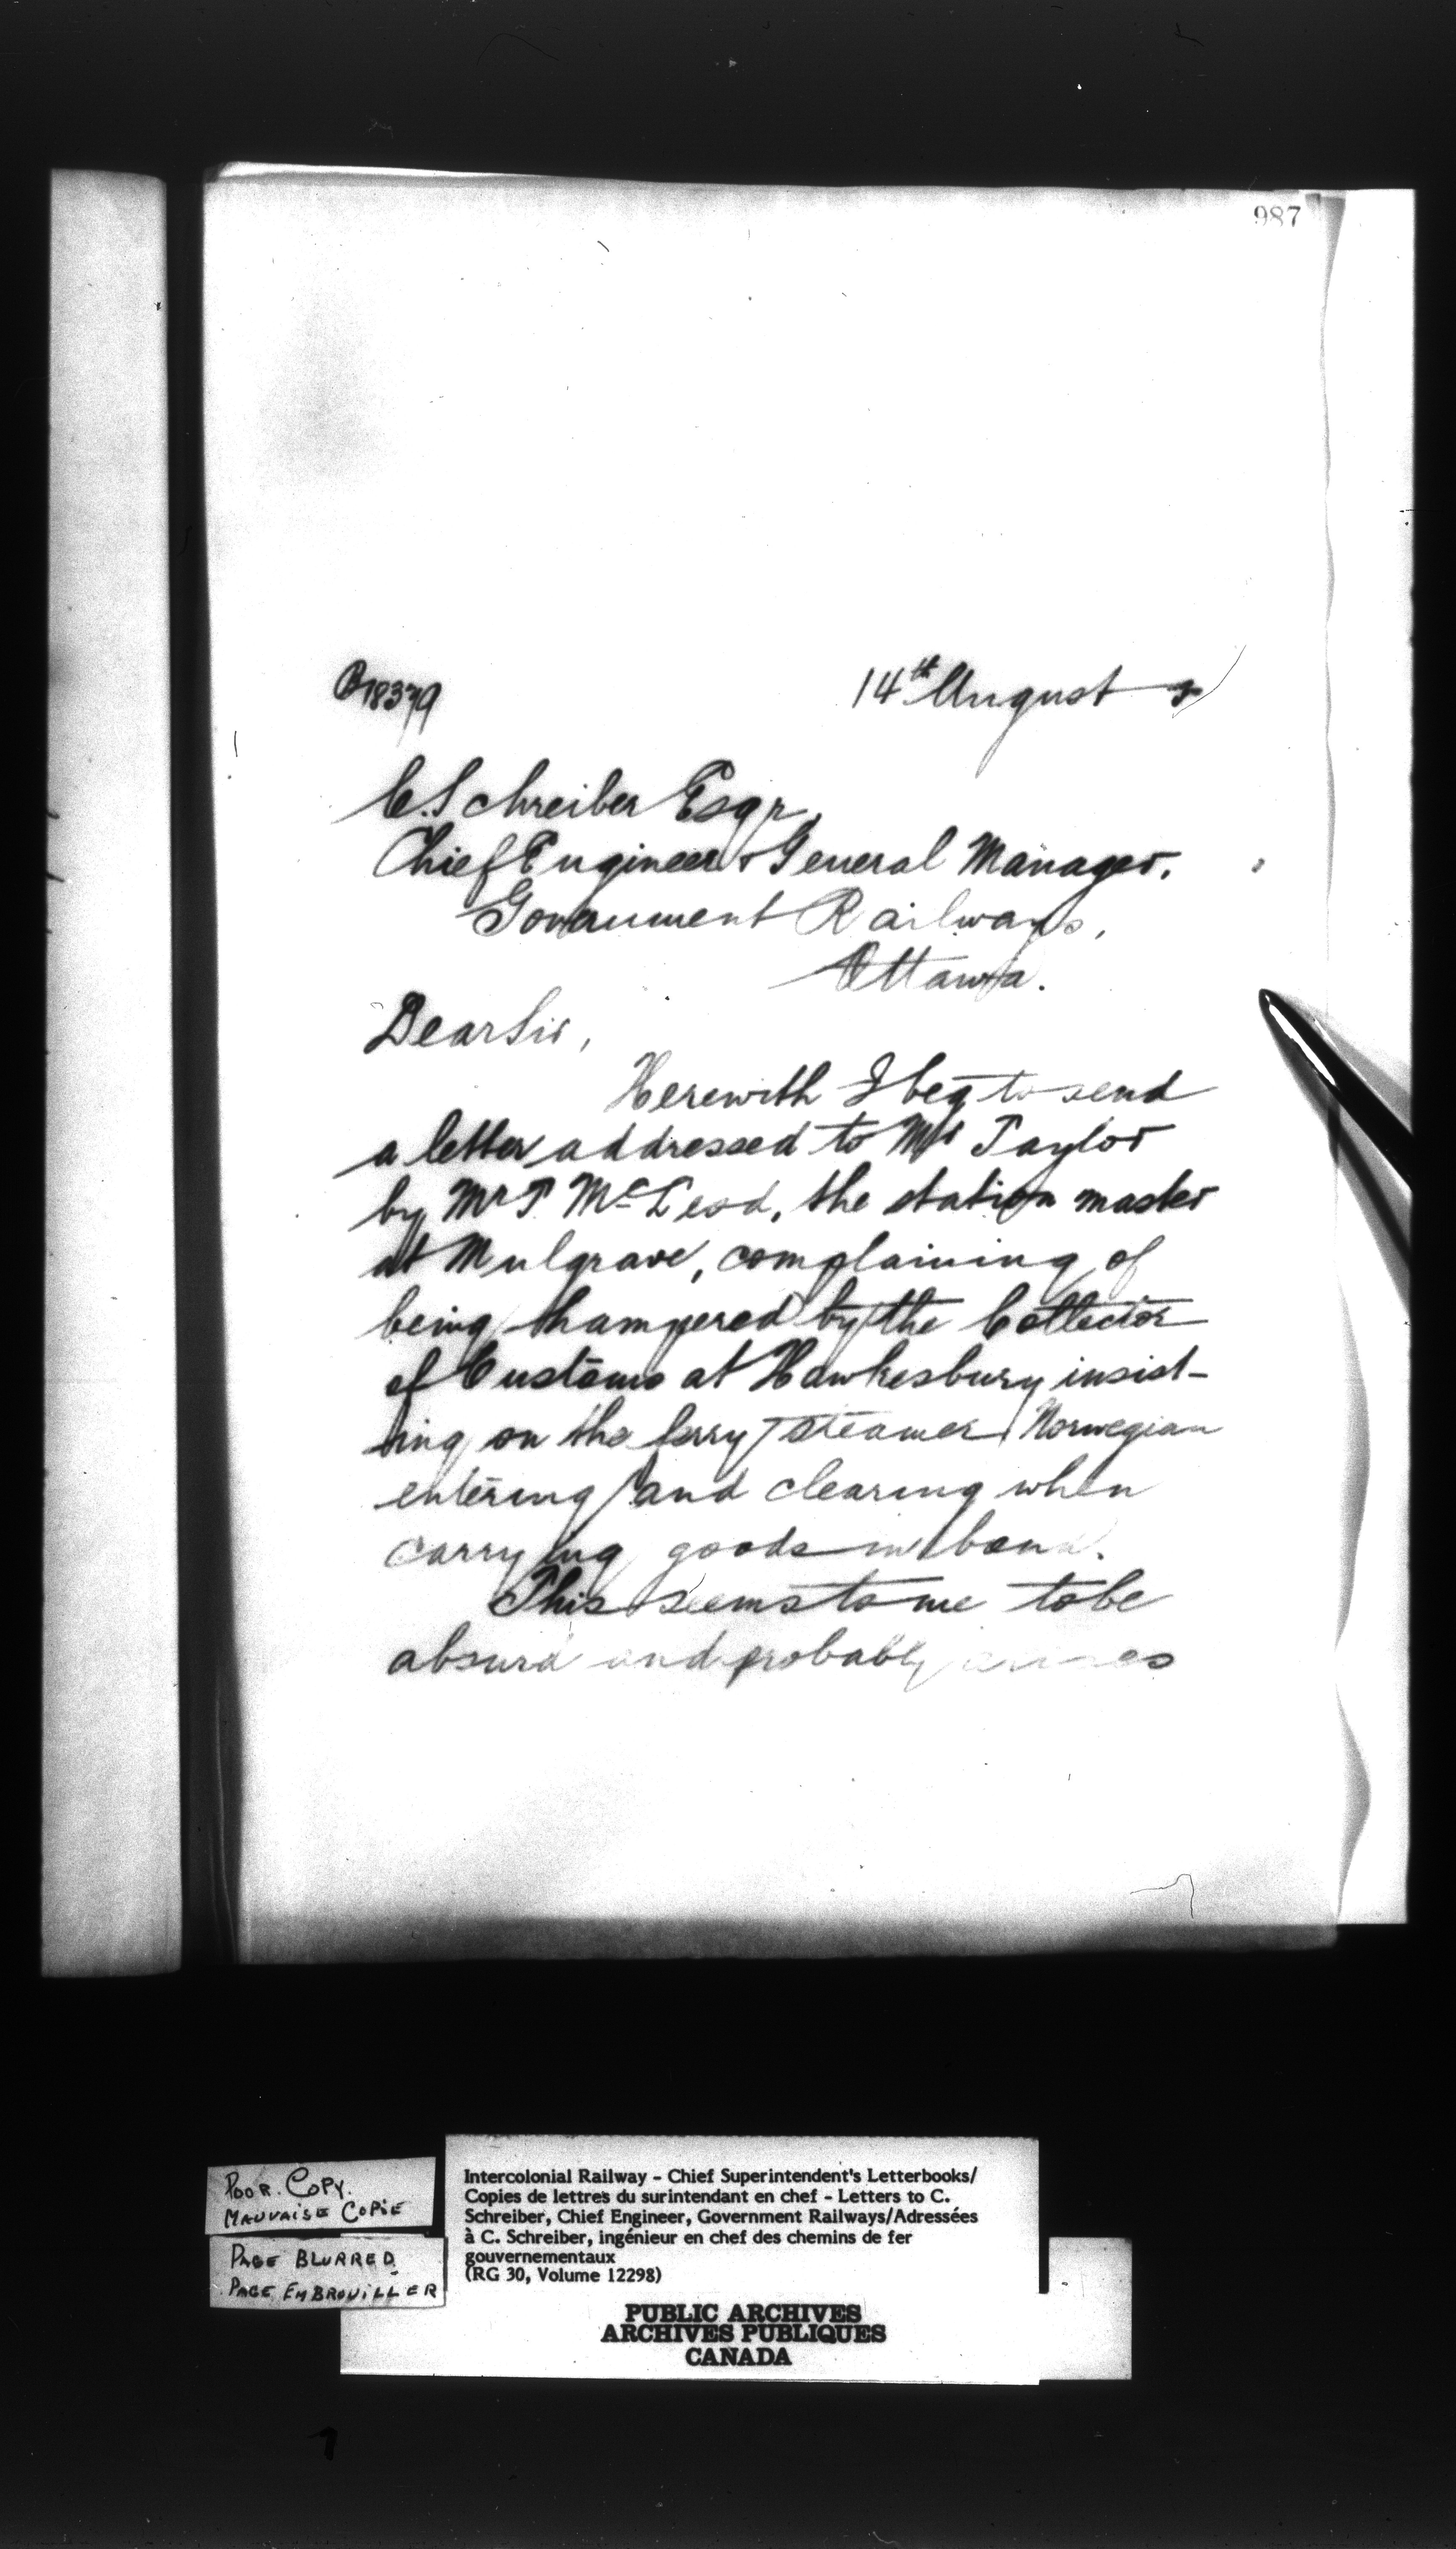 987
B18379
14th August
C. Schreiber Esqr,
Chief Engineer & General Manager.
Government Railways,
Ottawa.
Dear Sir,
Herewith I beg to send
a letter addressed to Mr Taylor
by Mr T McLeod, the station master
at Mulgrave, complaining of
being hampered by the Collector
of Customs at Hawkesbury insist-
ing on the ferry steamer Norwegian
entering and clearing when
carrying goods in bond.
This seems to me to be
absurd and probably arises
POOR. COPY.
MAUVAISE COPIE
PAGE BLURRED
PAGE EMBROUILLER
Intercolonial Railway - Chief Superintendent's Letterbooks/
Copies de lettres du surintendant en chef - Letters to C.
Schreiber, Chief Engineer, Government Railways/Adressées
à C. Schreiber, ingénieur en chef des chemins de fer
gouvernementaux
(RG 30, Volume 12298)
PUBLIC ARCHIVES
ARCHIVES PUBLIQUES
CANADA